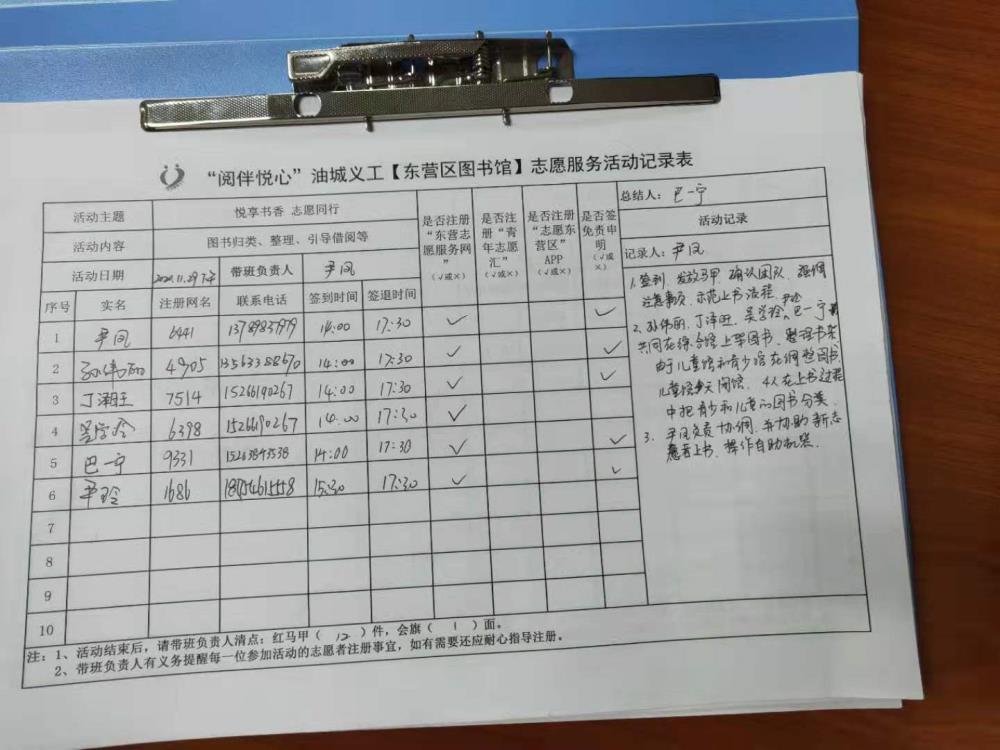 “阅伴悦心”油城义工【东营区图书馆】志愿服务活动记录表
活动主题 悦享书香 志愿同行
活动内容 图书归类、整理、引导借阅等
活动日期 带班负责人 尹凤
序号 实名 注册网名 联系电话 签到时间 签退时间
是否注册“东营志愿服务网”（√或×）
是否注册“青年志愿汇”（√或×）
是否注册“志愿东营区”APP（√或×）
是否签免责申明（√或×）
1 尹凤 6441 13789837979 14:00 17:30 √ √
2 孙伟丽 4905 13563388670 14:00 17:30 √ √
3 丁泽旺 7514 15266190267 14:00 17:30 √ √
4 吴学玲 6398 15266190267 14:00 17:30 √
5 巴一宁 9331 15263843538 14:00 17:30 √ √
6 尹玲 1686 15:30 17:30 √ √
7
8
9
10
总结人：巴一宁
活动记录
记录人：尹凤
1. 签到、发放马甲、确认团队、强调
注意事项、示范上书流程
2、孙伟丽、丁泽旺、吴学玲、尹玲、巴一宁
共同在综合馆上架图书、整理书架
由于儿童馆和青少馆在调整图书
儿童馆 闭馆、4人在上书过程
中把青少和儿童的图书分类、
3、尹凤负责协调、并协助新志
愿者上书、操作自助机器、
注：1、活动结束后，请带班负责人清点：红马甲（ 12 ）件，会旗（ 1 ）面。
2、带班负责人有义务提醒每一位参加活动的志愿者注册事宜，如有需要还应耐心指导注册。